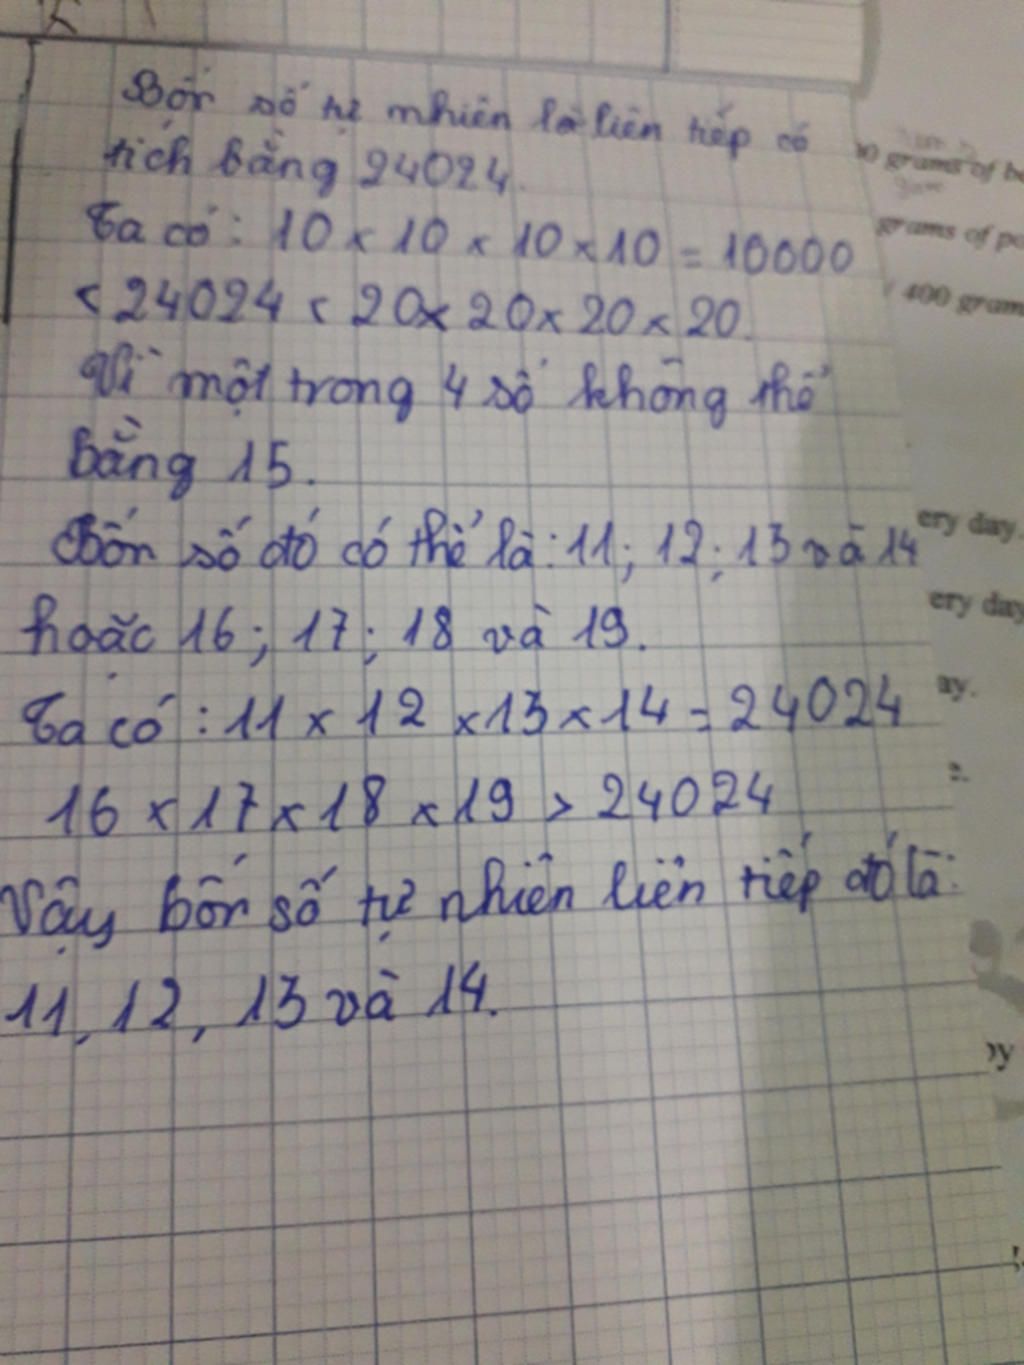 Bốn số tự nhiên là liên tiếp có
tích bằng 24024.
Ta có: 10 x 10 x 10 x 10 = 10000
< 24024 < 20 x 20 x 20 x 20.
Vì một trong 4 số không thể
bằng 15.
Bốn số đó có thể là: 11; 12; 13 và 14
hoặc 16; 17; 18 và 19.
Ta có: 11 x 12 x 13 x 14 = 24024
16 x 17 x 18 x 19 > 24024
Vậy bốn số tự nhiên liên tiếp đó là:
11, 12, 13 và 14.
grams of
grams of
400 gram
ery day.
ery day
ay.